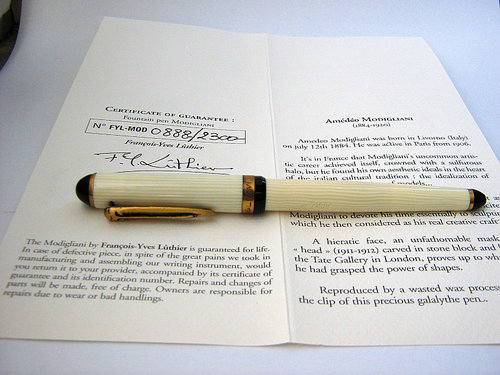 CERTIFICATE OF GUARANTEE :
Fountain pen MODIGLIANI
N° FYL-MOD 0888/2300
François-Yves Lüthier
F Y Lüthier
The Modigliani by François-Yves Lüthier is guaranteed for life.
In case of defective piece, in spite of the great pains we took in
manufacturing and assembling our writing instrument, would
you return it to your provider, accompanied by its certificate of
guarantee and its identification number. Repairs and changes of
parts will be made, free of charge. Owners are responsible for
repairs due to wear or bad handlings.
Amédéo MODIGLIANI
(1884-1920)
Amedeo Modigliani was born in Livorno (Italy)
on july 12th 1884. He was active in Paris from 1906.
It's in France that Modigliani's uncommon artis-
tic career achieved itself, crowned with a sulfurous
halo, but he found his own aesthetic ideals in the heart
of the italian cultural tradition : the idealization of
models...
Modigliani to devote his time essentially to sculptu
which he then considered as his real creative craft
A hieratic face, an unfathomable mask
« head » (1911-1912) carved in stone block and
the Tate Gallery in London, proves up to wh
he had grasped the power of shapes.
Reproduced by a wasted wax process
the clip of this precious galalythe pen..